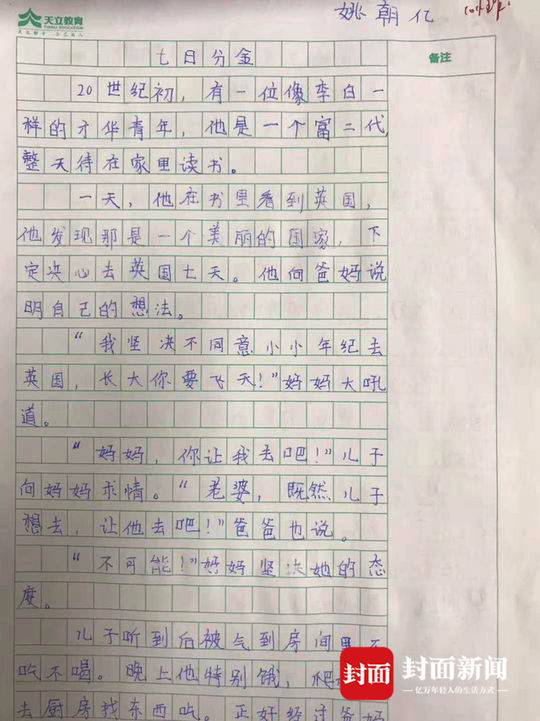 天立教育
TIANLI EDUCATION
姚朝亿
七日分金
备注
20世纪初，有一位像李白一
样的才华青年，他是一个富二代
整天待在家里读书。
一天，他在书里看到英国，
他发现那是一个美丽的国家，下
定决心去英国七天。他向爸妈说
明自己的想法。
“我坚决不同意小小年纪去
英国，长大你要飞天！”妈妈大吼
道。
“妈妈，你让我去吧！”儿子
向妈妈求情。“老婆，既然儿子
想去，让他去吧！”爸爸也说。
“不可能！”妈妈坚决她的态
度。
儿子听到后被气到房间里不
吃不喝。晚上他特别饿，爬
去厨房找东西吃。正好经过爸妈
封面
封面新闻
亿万年轻人的生活方式